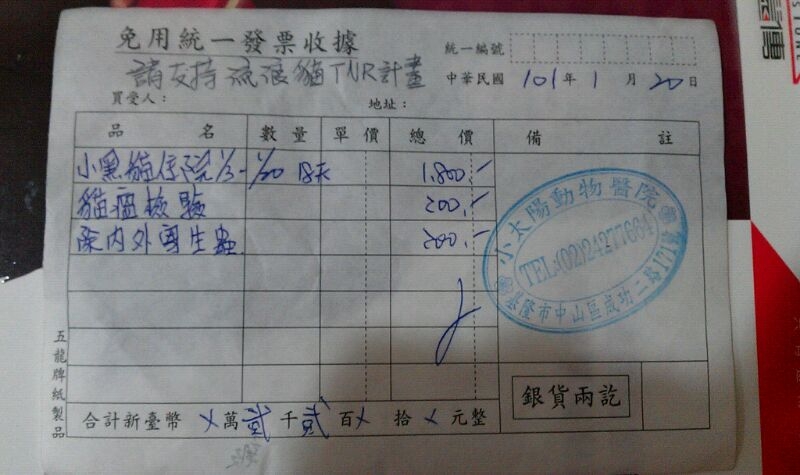 免用統一發票收據
統一編號
請支持流浪貓TNR計畫
中華民國 101年 1 月 20 日
買受人： 地址：
品 名 數量 單價 總 價 備 註
小黑貓住院1/3-1/20 18天 1,800.-
貓瘟檢驗 200.-
除內外寄生蟲 200.-
小太陽動物醫院
TEL:(02)24277664
基隆市中山區成功二路171號
五龍牌紙製品
銀貨兩訖
合計新臺幣 ㄨ萬貳千貳百ㄨ拾ㄨ元整